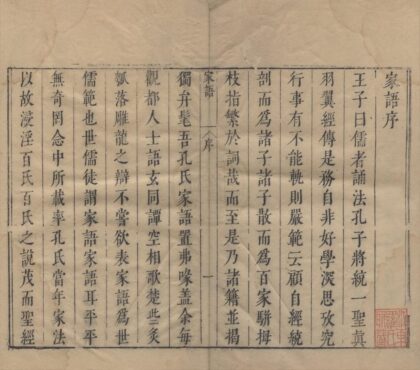 家語序
王子曰儒者誦法孔子將統一聖眞
羽翼經傳是務自非好學深思攷究
行事有不能軌則嚴範云顧自經統
剖而爲諸子諸子散而爲百家駢拇
枝指繁於詞哉而至是乃諸籍並揭
家語
序
一
獨弁髦吾孔氏家語置弗喙盖余每
觀都人士語玄同譚空相歌楚些炙
瓠落雕龍之辯不嘗欲表家語爲世
儒範也世儒徒謂家語家語耳平平
無奇罔念中所載率孔氏當年家法
以故浸淫百氏百氏之說茂而聖經